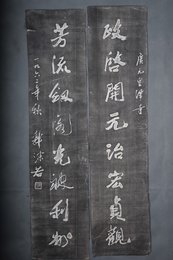 廣元皇澤寺
政啓開元治宏貞觀
芳流劍閣光被利州
一九六三年秋 郭沫若